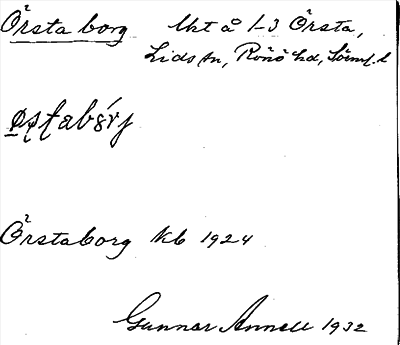 Örsta borg lht å 1-3 Örsta,
Lids sn, Rönö hd, Söerml. l
Örstaborg kb 1924
Gunnar Annell 1932